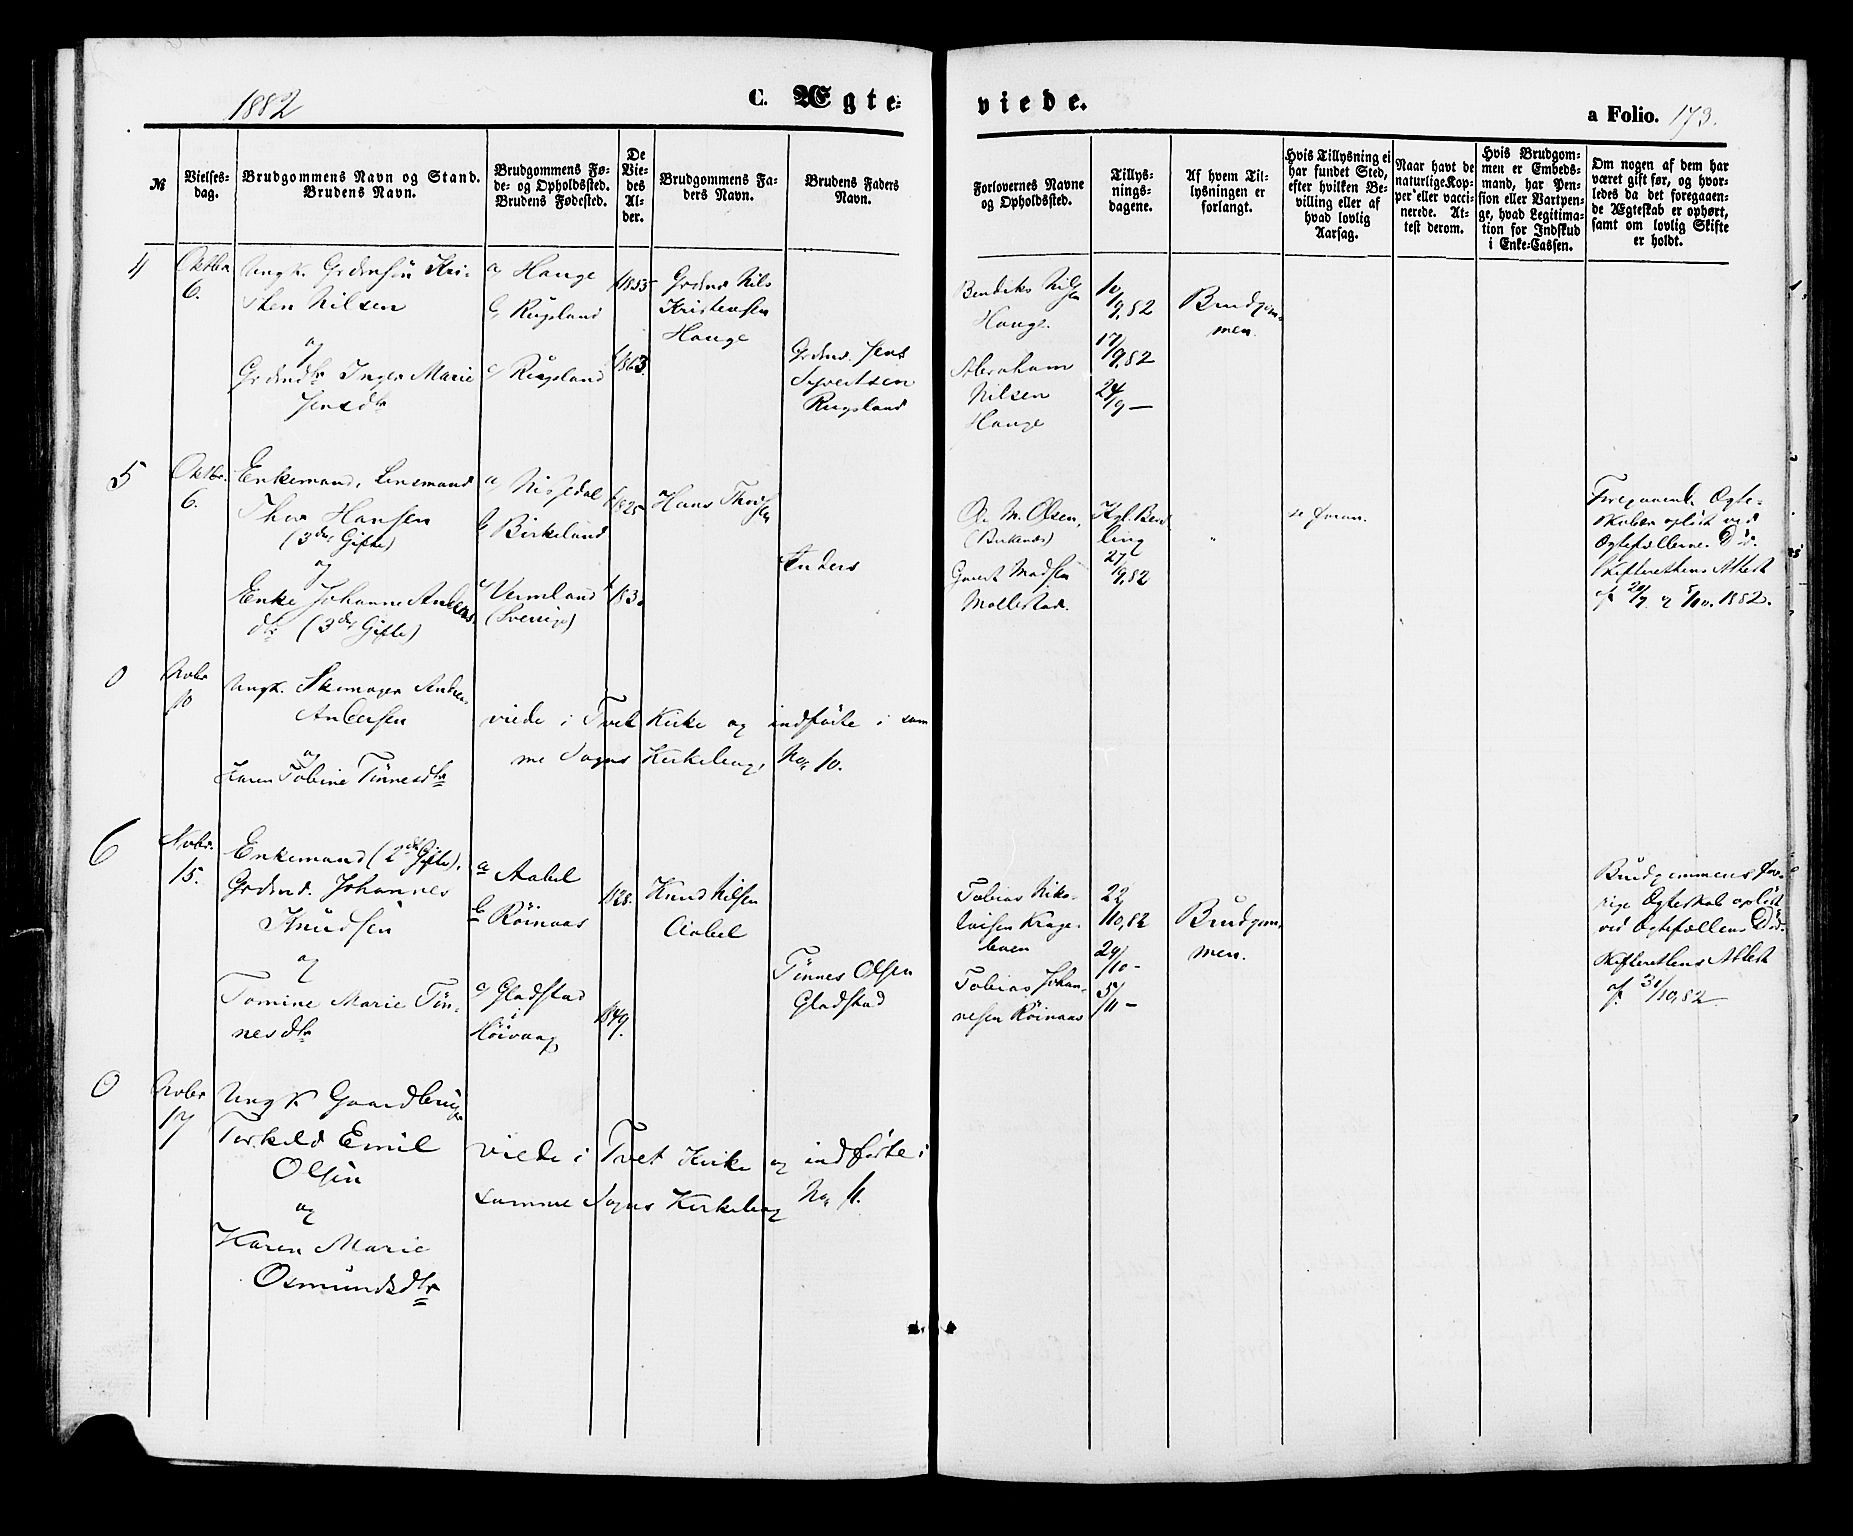 1882
C. Ægte-
viede.
a Folio. 173.
№
Vielses-
dag.
Brudgommens Navn og Stand.
Brudens Navn.
Brudgommens Fø-
de- og Opholdssted.
Brudens Fødested.
De
Vie-
des
Al-
der.
Brudgommens Fa-
ders Navn.
Brudens Faders
Navn.
Forlovernes Navne
og Opholdssted.
Tillys-
nings-
dagene.
Af hvem Til-
lysningen er
forlangt.
Hvis Tillysning ei
har fundet Sted,
efter hvilken Be-
villing eller af
hvad lovlig
Aarsag.
Naar havt de
naturlige Kop-
per eller vacci-
nerede. At-
test derom.
Hvis Brudgom-
men er Embeds-
mand, har Pen-
sion eller Vartpen-
ge, hvad Legitima-
tion for Indskud
i Enke-Cassen.
Om nogen af dem har
været gift før, og hvor-
ledes da det foregaaen-
de Ægteskab er ophørt,
samt om lovlig Skifte
er holdt.
4
Oktbr.
6.
Ungk. Grdmsøn Kri-
sten Nilsen
og
Grdmdtr Inger Marie
Jensdtr
a Hauge
b Rugsland
c Rugsland
1855
1863
Grdmd Nils
Kristensen
Hauge
Grdmd. Jens
Syvertsen
Rugsland
Bendiks Nilsen
Hauge.
Abraham
Nilsen
Hauge
10/9, 82
17/9, 82
24/9 —
Brudgom-
men.
5
Oktbr.
6.
Enkemand, Lensmand
Thor Hansen
(3die Gifte)
og
Enke Johanne Anders-
dtr (3die Gifte)
a Nissedal
b Birkeland
c Vermland
(Sverige)
1825
183
Hans Thorsen
Anders
O. M. Olsen,
(Birkenæs)
Gunst Madsen
Mollestad.
Kgl. Bevil-
ling
27/9, 82
"
se foran.
Foregaaende Ægte-
skaber opløst ved
Ægtefællernes Død.
Skifterettens Attest
af 20/9 og 5/10. 1882.
0
Novbr
10
Ungk. Skomager Anders
Andersen
og
Karen Tobine Tønnesdtr
viede i Tvet Kirke og indførte i sam-
me Sogns Kirkebog, No 10.
6
Novbr.
15.
Enkemand (2den Gifte),
Grdmd. Johannes
Knudsen
og
Tomine Marie Tøn-
nesdtr
a Aabel
b Røinaas
c Gladstad
i
Høivaag
1828.
1849.
Knud Nilsen
Aabel
Tønnes Olsen
Gladstad
Tobias Niko-
laisen Krage-
boen
Tobias Johan-
nesen Røinaas
22/10, 82
29/10 -
5/11 -
Brudgom-
men.
Brudgommens for-
rige Ægteskab opløst
ved Ægtefællens Død.
Skifterettens Attest
af 31/10, 82
0
Novbr
17
Ungk Gaardbruger
Torkeld Emil
Olsen
og
Karen Marie
Osmundsdtr
viede i Tvet Kirke og indførte i
samme Sogns Kirkebog No 11.